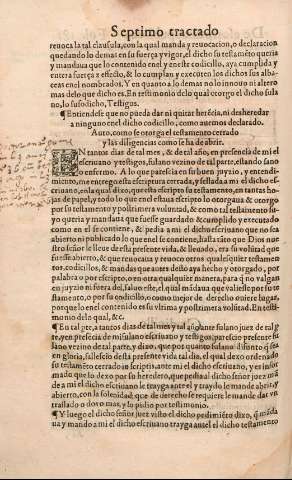 Septimo tractado
reuoca la tal clausula, con la qual manda y reuocacion, o declaracion
quedando lo demas en su fuerça y vigor, el dicho su testamēto queria
y mandaua que lo contenido en el y en este codicillo, aya cumplida y
entera fuerça y effecto, & lo cumplan y executen los dichos sus alba-
ceas en el nombrados. Y en quanto a lo demas no lo innouo ni altero
mas de lo que dicho es. En testimonio de lo qual otorgo el dicho fula
no, lo susodicho, Testigos.
¶ Entiendese que no pueda dar ni quitar herēcia, ni desheredar
a ninguno en el dicho codicillo, como auemos declarado.
Auto, como se otorga el testamento cerrado
y las diligencias como se ha de abrir.
EN tantos dias de tal mes, & de tal año, en presencia de mi el
escriuano y testigos, fulano vezino de tal parte, estando sano
o enfermo. A lo que parescia en su buen juyzio, y entendi-
miento, me entrego esta escriptura cerrada, y sellada a mi el dicho esc-
criuano, en la qual dixo, que esta escripto su testamento, en tantas ho-
jas de papel, y todo lo que en el estaua escripto lo otorgaua & otorgo
por su testamento y postrimera voluntad, & como tal testamento su-
yo queria y mandaua que fuesse guardado & cumplido y executado
como en el se contiene, & pedia a mi el dicho escriuano que no sea
abierto ni publicado lo que en el se contiene, hasta tāto que Dios nue
stro señor le lleue de esta presente vida, & lleuado, era su volūtad que
fuesse abierto, & que reuocaua y reuoco otros qualesquier testamen-
tos, codicillos, & mandas que antes deste aya hecho y otorgado, por
palabra o por escripto, o en otra qualquier manera, para q̃ no valgan
en juyzio ni fuera del, saluo este, el qual mādaua que valiesse por su te
stamento, o por su codicillo, o como mejor de derecho ouiere lugar,
porque lo en el contenido es su vltima y postrimera volūtad. En testi-
monio de la qual, &c.
¶ En tal pte, a tantos dias de tal mes y tal año, ante fulano juez de tal p̄
te, y en presēcia de mi fulano escriuano y testigos, parescio presente fu
lano vezino de tal parte, y dixo, que por quanto fulano difunto q̃ sea
en gloria, fallescio desta presente vida tal dia, el qual dexo ordenado
su testamēto cerrado in scriptis, ante mi el dicho escriuano, y es infor
mado que lo dexo por su heredero, que pedia al dicho señor juez mā
de a mi el dicho escriuano le trayga ante el y traydo le mande abrir, y
abierto, con la solenidad q̃ de derecho se requiere le mande dar vn
traslado o dos o mas, y lo pidio por testimonio.
¶ Y luego el dicho señor juez visto el dicho pedimiēto dixo, q̃ māda
ua y mando a mi el dicho escriuano trayga ante el dicho testamento